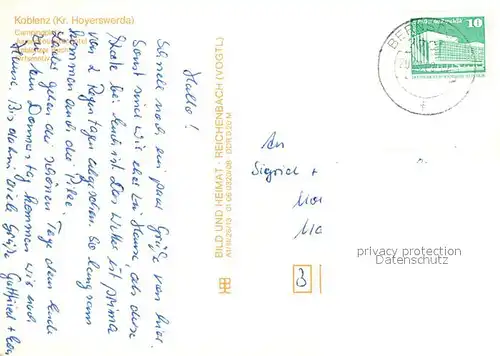 Koblenz (Kr. Hoyerswerda)
Hallo!
Schnell noch ein paar Grüße von hier.
Sonst sind wir eher zu Hause als diese
Karte bei Euch ist. Das Wetter ist prima
von 2 Regentagen abgesehen. So langsam
kommen auch die Pilze.
Leider gehen die schönen Tage dem Ende
zu, am Donnerstag kommen wir nach
Hause. Bis dahin viele Grüße Gottfried +
BILD UND HEIMAT · REICHENBACH (VOGTL)
A1/III/26/13 01 06 0320/08 DDR 0,20 M
10
An
Sigrid +
privacy protection
Datenschutz